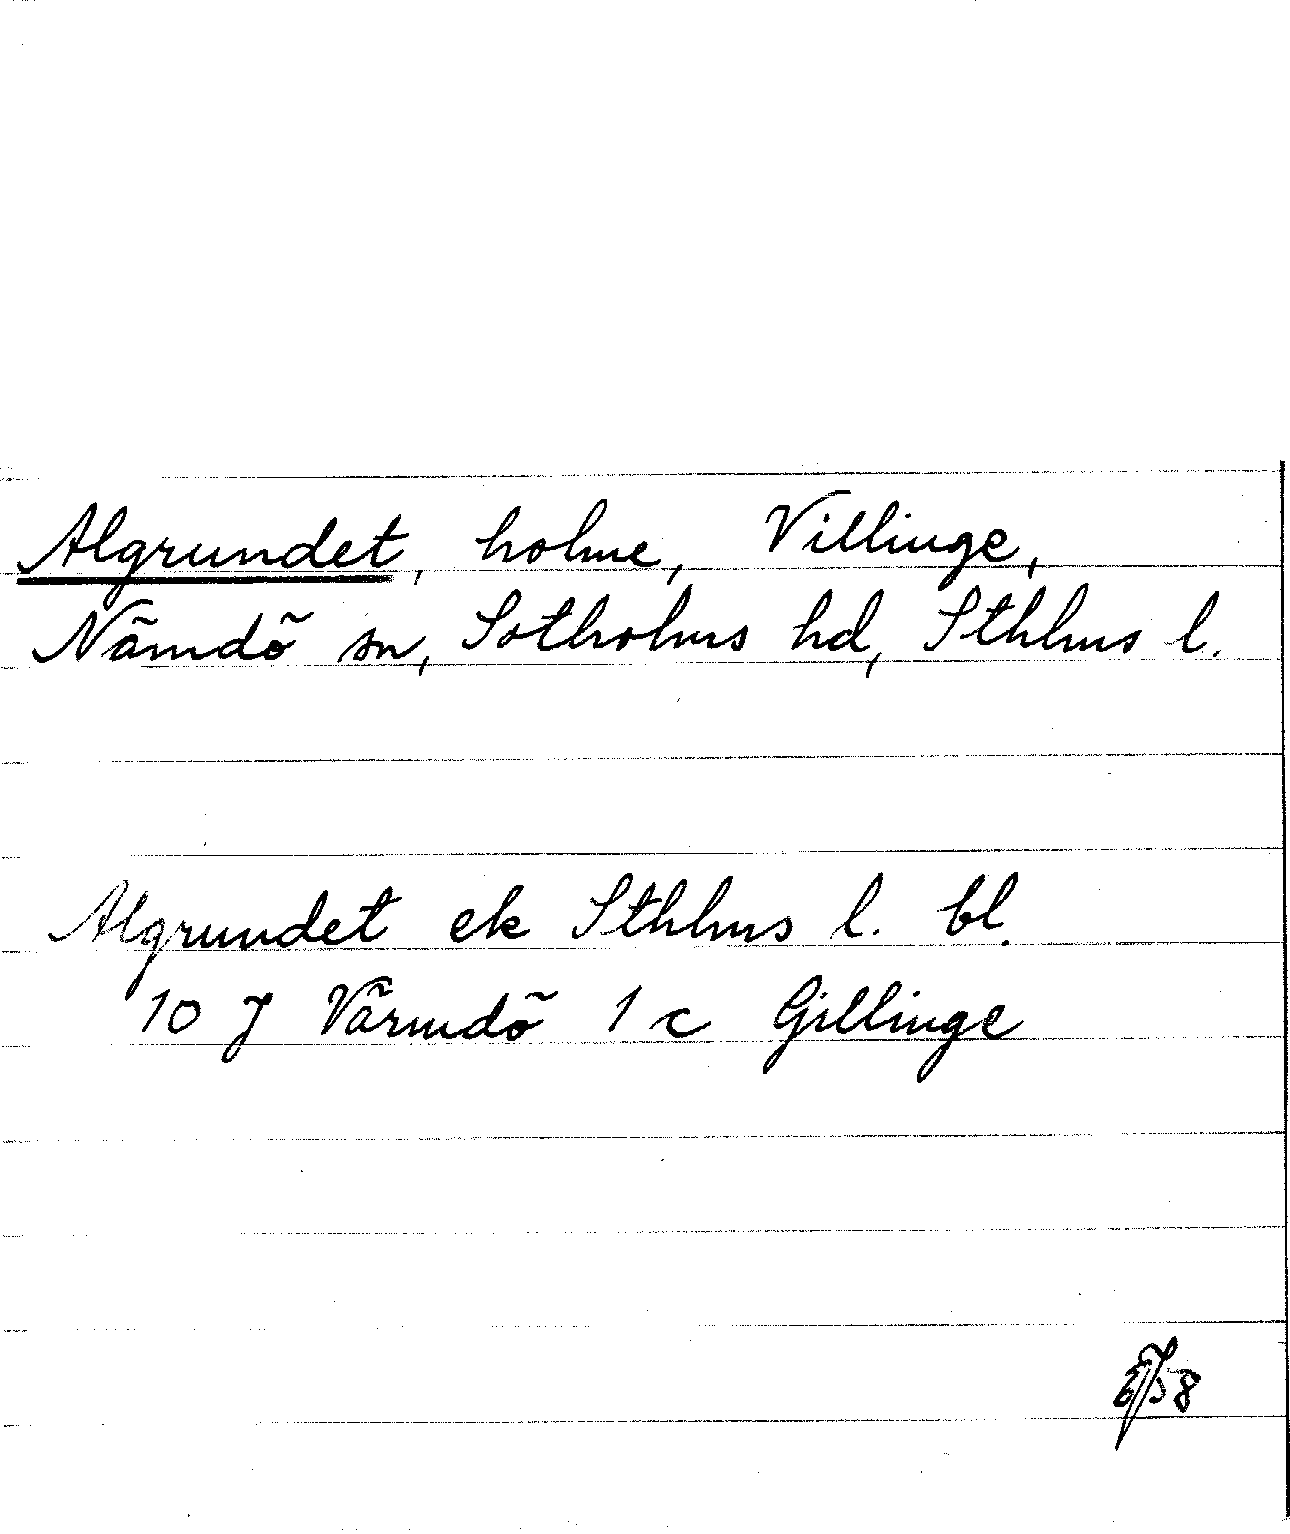 Algrundet, holme, Villinge,
Nämdö sn, Sotholms hd, Sthlms l.
Algrundet ek Sthlms l. bl.
10 J Värmdö 1 c Gillinge